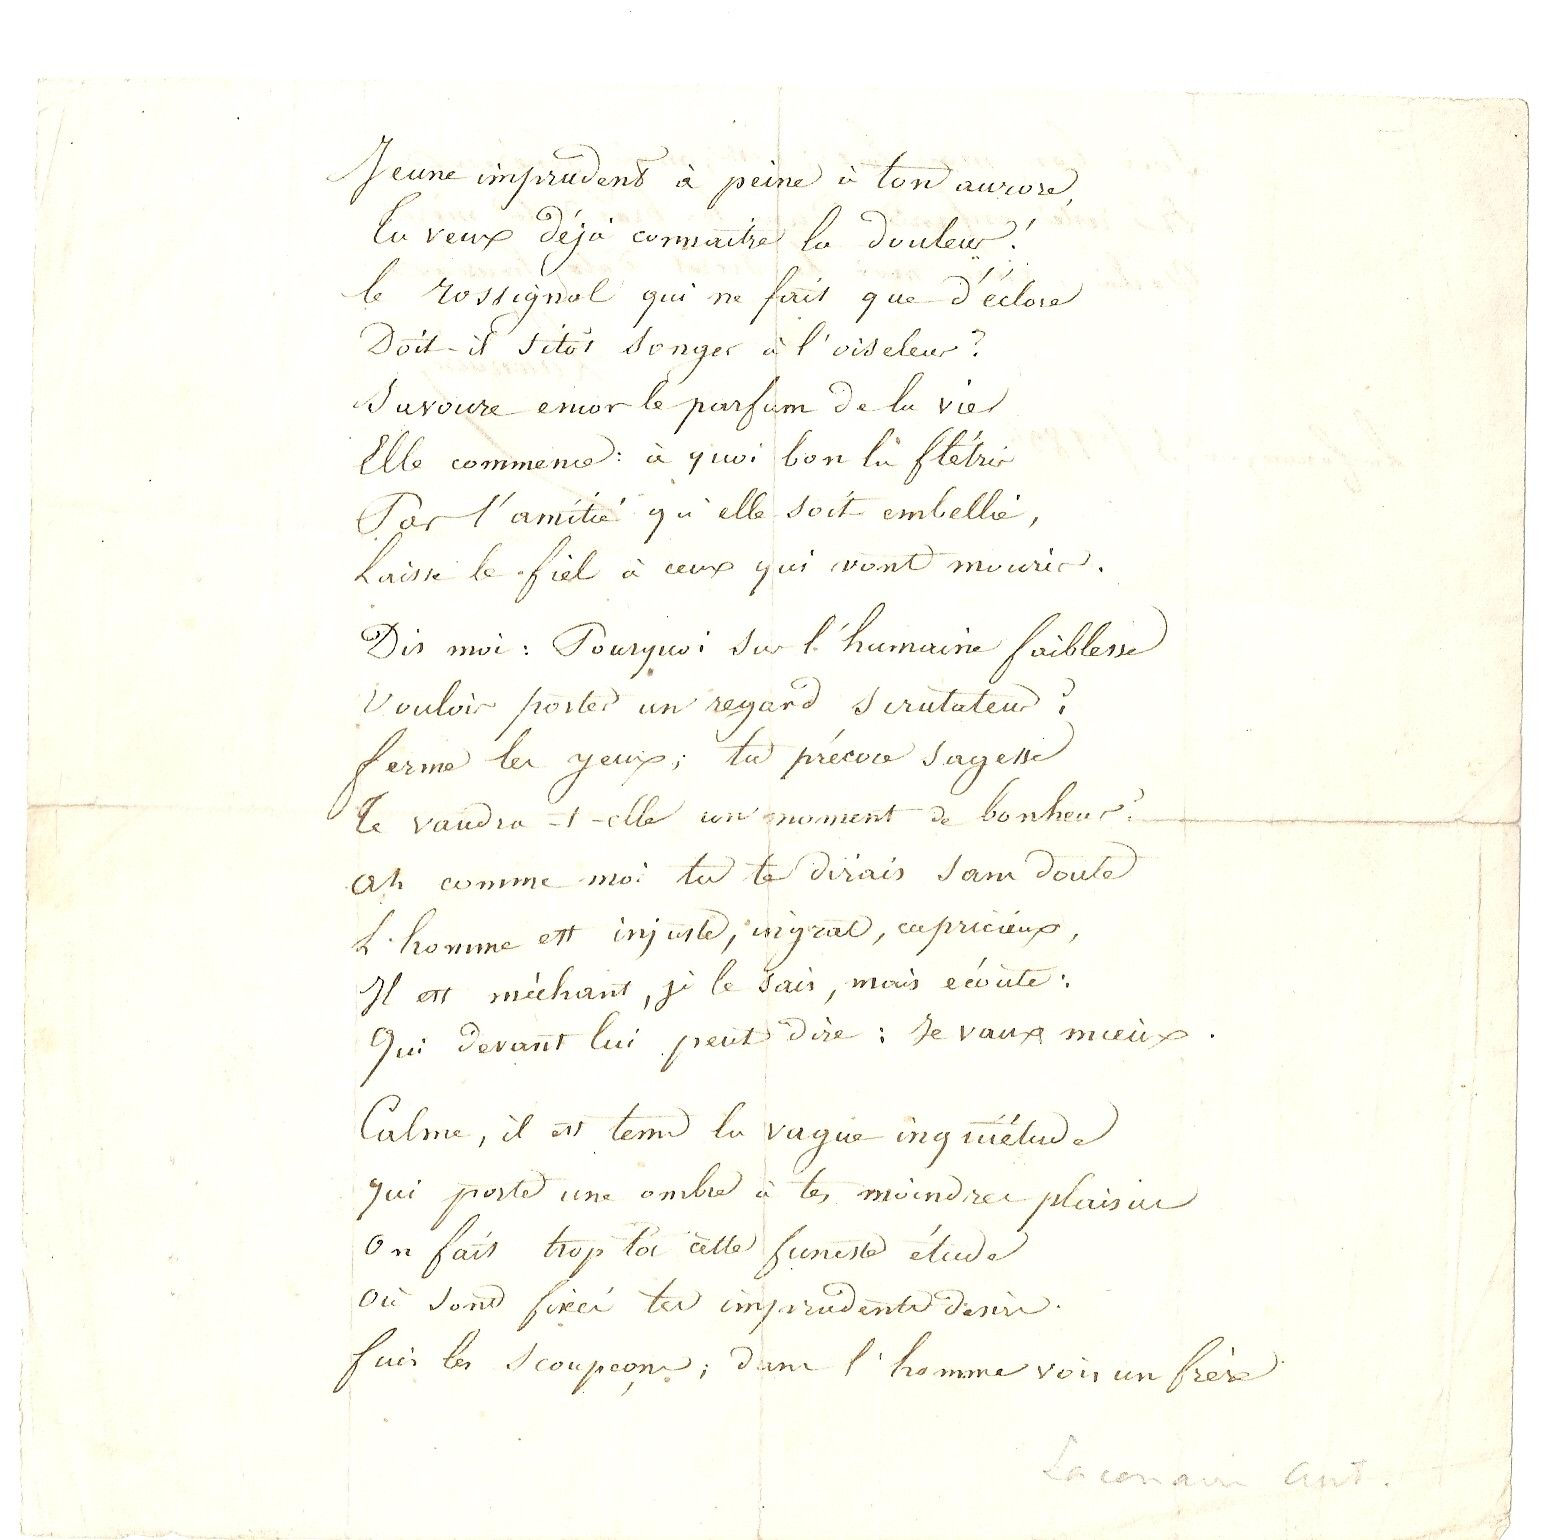 Jeune imprudent à peine à ton aurore,
Tu veux déjà connaitre la douleur !
le rossignol qui ne fait que d'éclore
Doit-il sitôt songer à l'oiseleur ?
Savoure encor le parfum de la vie
Elle commence : à quoi bon la flétrir
Par l'amitié qu'elle soit embellie,
Laisse le fiel à ceux qui vont mourir.
Dis moi : Pourquoi sur l'humaine faiblesse
Vouloir porter un regard scrutateur ?
ferme les yeux ; ta précoce sagesse
Te vaudra-t-elle un moment de bonheur ?
ah comme moi tu te dirais sans doute
L'homme est injuste, ingrat, capricieux,
Il est méchant, je le sais, mais ecoute :
Qui devant lui peut dire : Je vaux mieux.
Calme, il est tems la vague inquiétude
qui porte une ombre à tes moindres plaisirs
On fait trop tôt cette funeste étude
où sont fixés tes imprudents desirs.
fuis les scoupçons ; dans l'homme vois un frère
Lacenaire Aut.